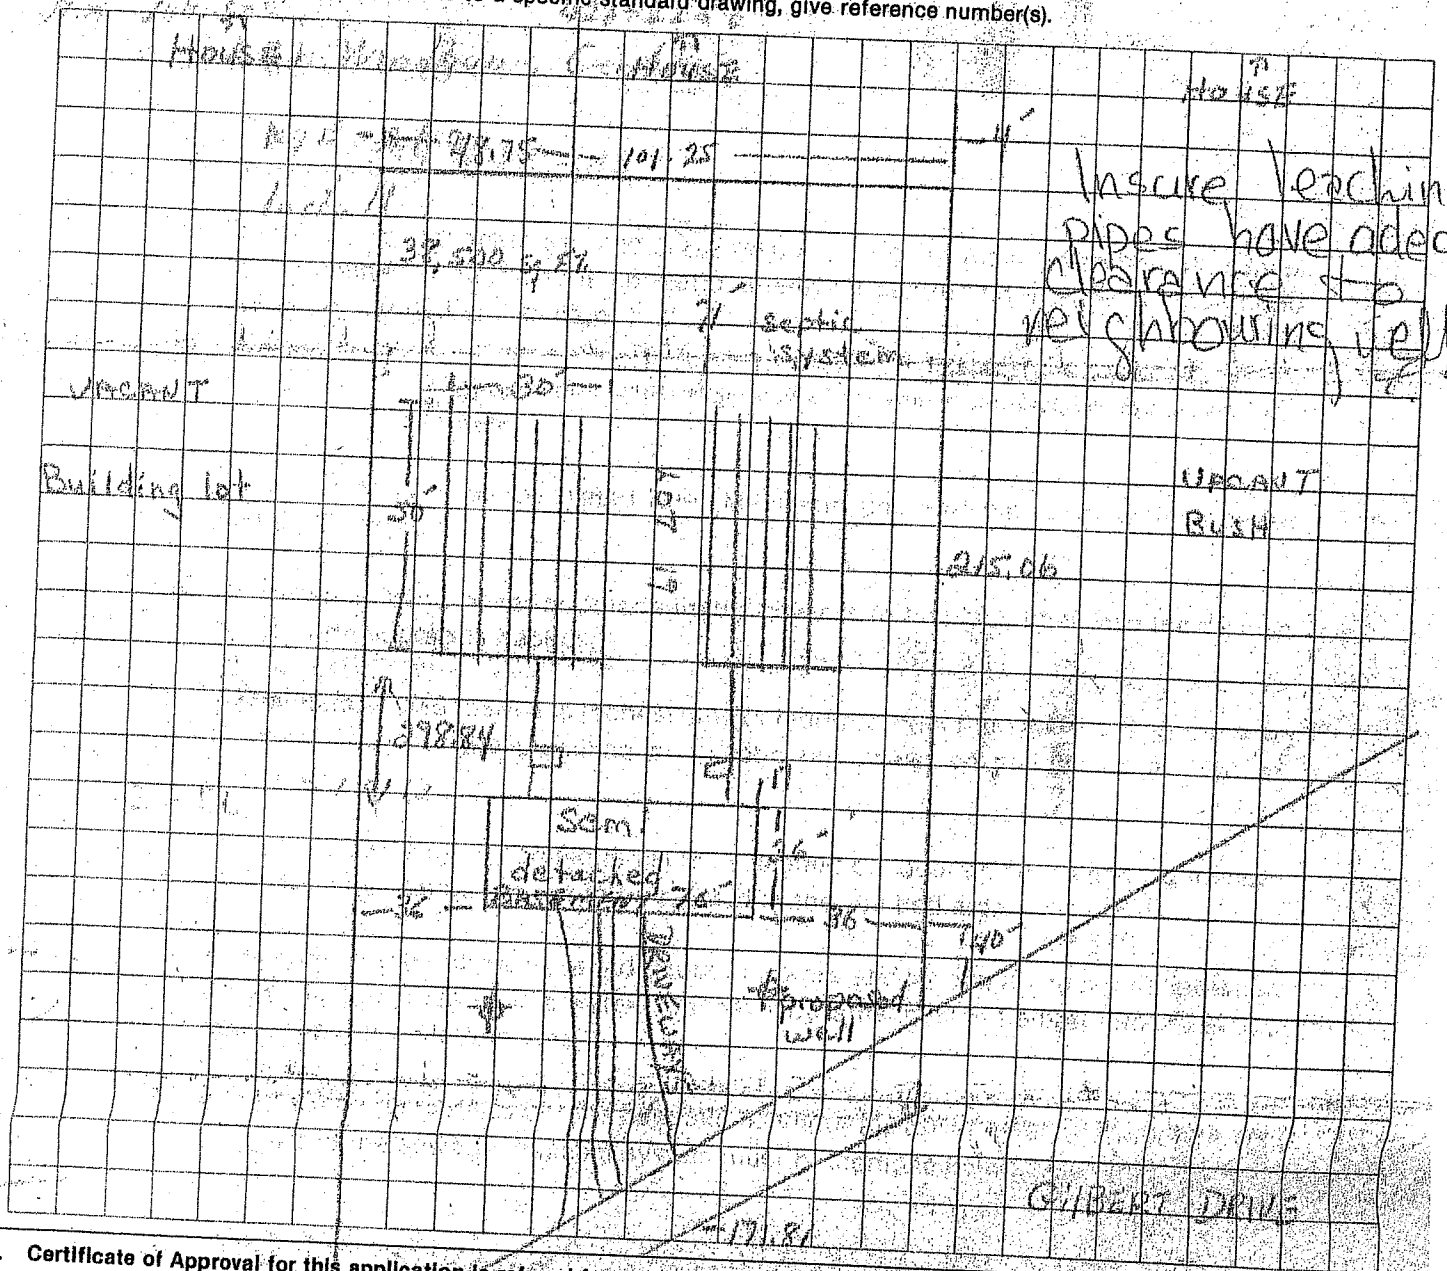 a specific standard drawing, give reference number(s).
House
House
House
98.75 101.25
4'
Insure leachin
pipes have adec
clearance to
neighbouring well
38,500 sq ft.
septic
system
VACANT
30'
Building lot
50'
LOT 19
VACANT
BUSH
215.06
298.84
Sem.
detached
26'
36
BASEMENT 76'
36
40'
DRIVEWAYS
proposed
well
GilBERT DRIVE
171.81
Certificate of Approval for this application